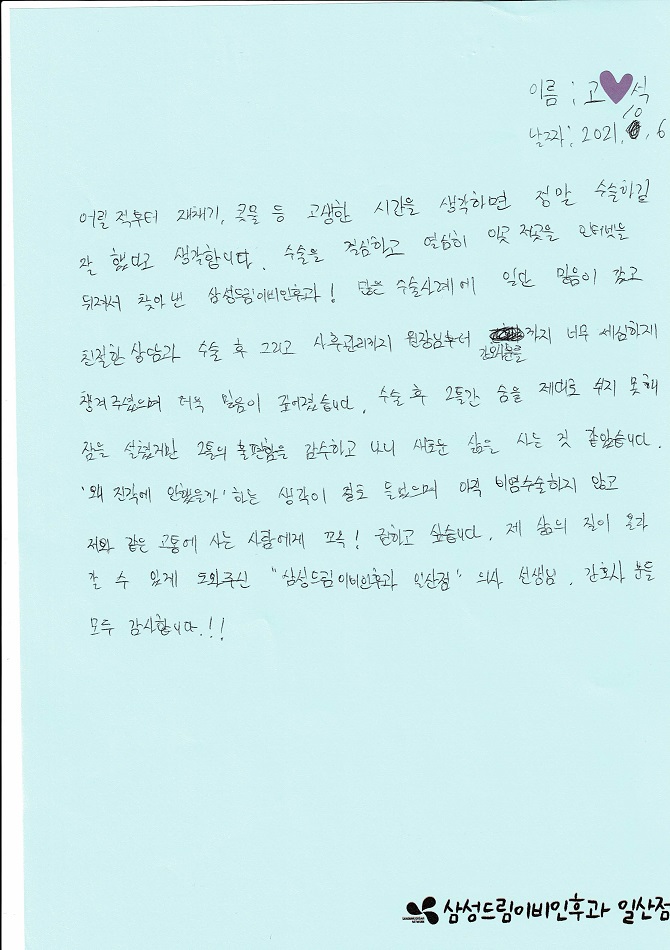 이름 : 고 석
날짜 : 2021. 10. 6
어릴 적부터 재채기, 콧물 등 고생한 시간을 생각하면 정말 수술하길
잘 했다고 생각합니다. 수술을 결심하고 열심히 이곳 저곳을 인터넷을
뒤져서 찾아낸 삼성드림이비인후과! 많은 수술사례에 일단 믿음이 갔고
친절한 상담과 수술 후 그리고 사후관리까지 원장님부터 간호사분들까지 너무 세심하게
챙겨주셨으며 더욱 믿음이 깊어졌습니다. 수술 후 2틀간 숨을 제대로 쉬지 못해
잠을 설쳤지만 2틀의 불편함을 감수하고 나니 새로운 삶을 사는 것 같았습니다.
'왜 진작에 안했을까' 하는 생각이 절로 들었으며 아직 비염수술하지 않고
저와 같은 고통에 사는 사람에게 꼬옥! 권하고 싶습니다. 제 삶의 질이 올라
갈 수 있게 도와주신 "삼성드림이비인후과 일산점" 의사 선생님, 간호사 분들
모두 감사합니다.!!
삼성드림이비인후과 일산점